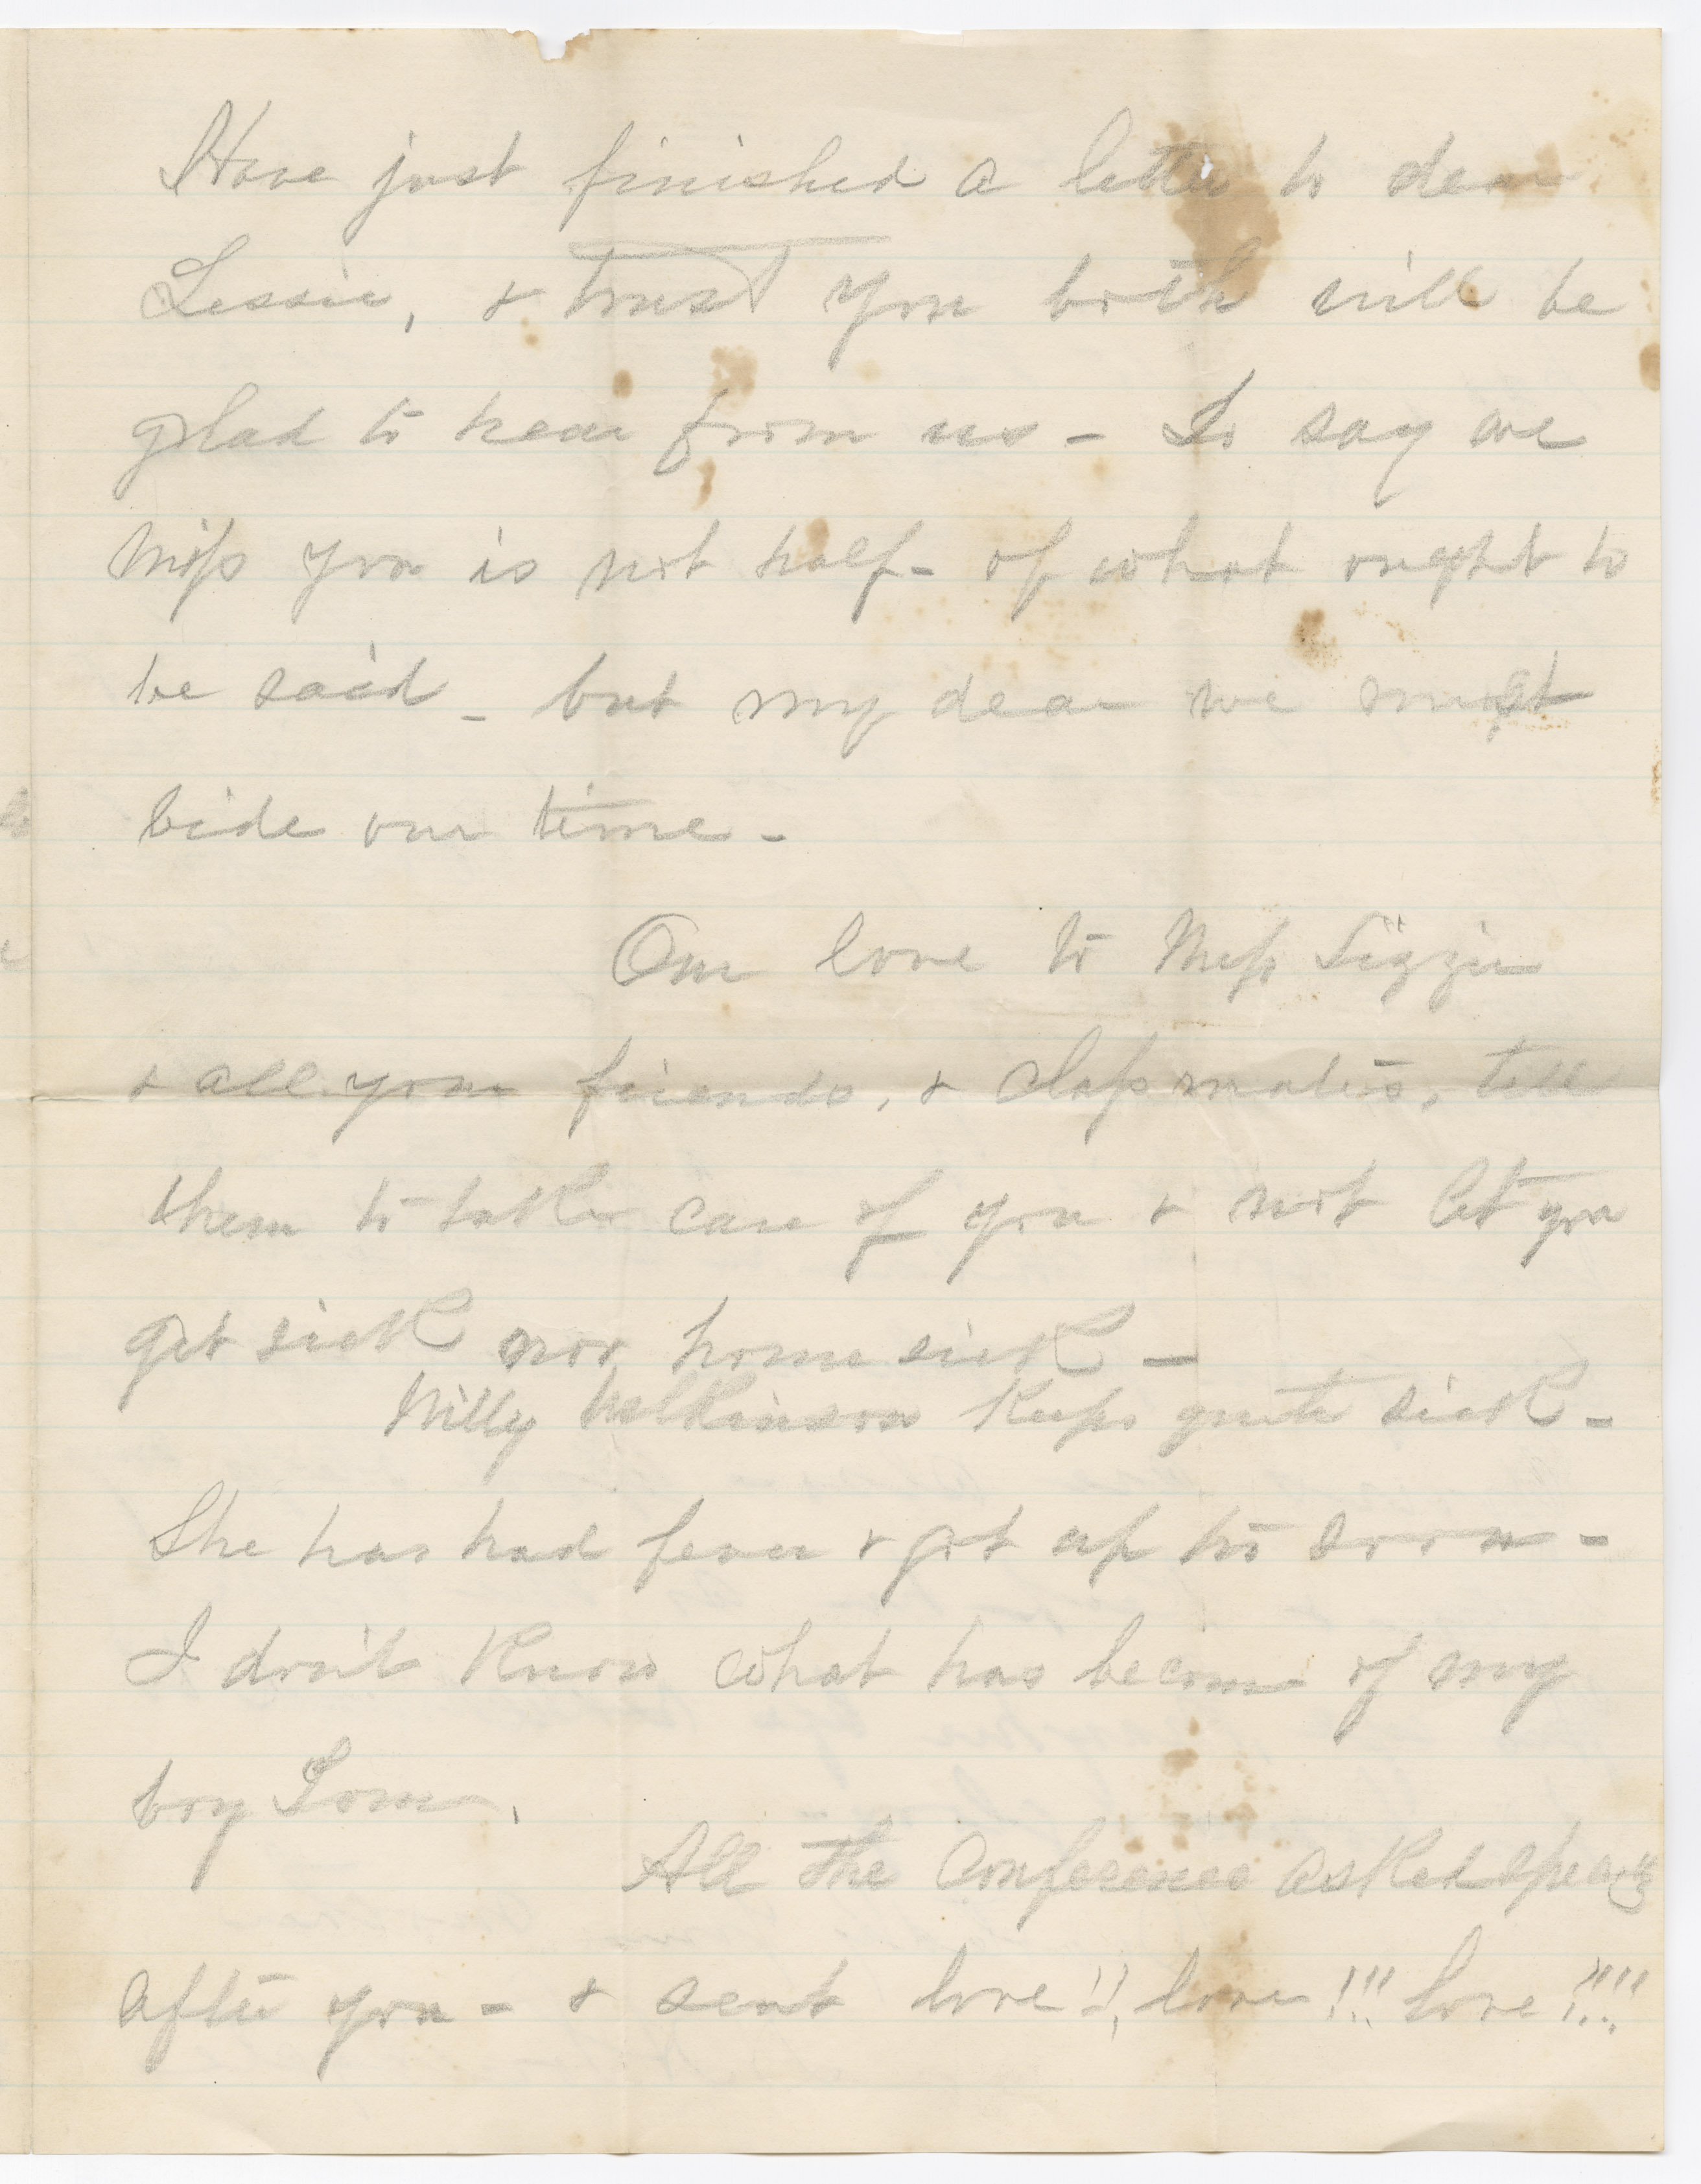 Have just finished a letter to dear
Lessie, & trust you both will be
glad to hear from us - To say we
miss you is not half - of what ought to
be said - but my dear we must
bide our time -
Our love to Miss Lizzie
& all your friends, & Classmates, tell
them to take care of you & not let you
get sick nor home sick -
Willy Wilkinson keeps quite sick -
She has had fever & got up too soon -
I don't know what has become of my
boy Tom.
All the Conference asked
after you - & sent love!! love!!! love!!!!